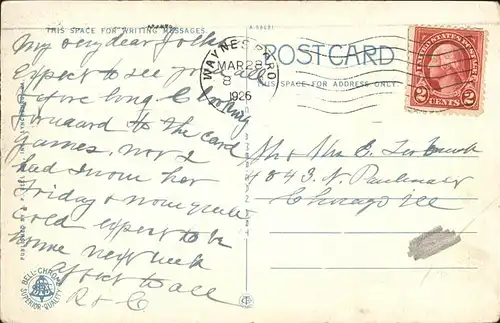 THIS SPACE FOR WRITING MESSAGES.
My very dear folks
Expect to see you all
before long & looking
forward to the card
games, nov 2
had snow her
Friday & now quite
cold expect to be
home next week
after to all
R & C.
BELL-CHROME
SUPERIOR QUALITY
WAYNESBORO
MAR 28
8
1926
POST CARD
THIS SPACE FOR ADDRESS ONLY.
UNITED STATES POSTAGE
2 CENTS 2
Mr & Mrs E. Leo
4843 N. Paulina
Chicago Ill